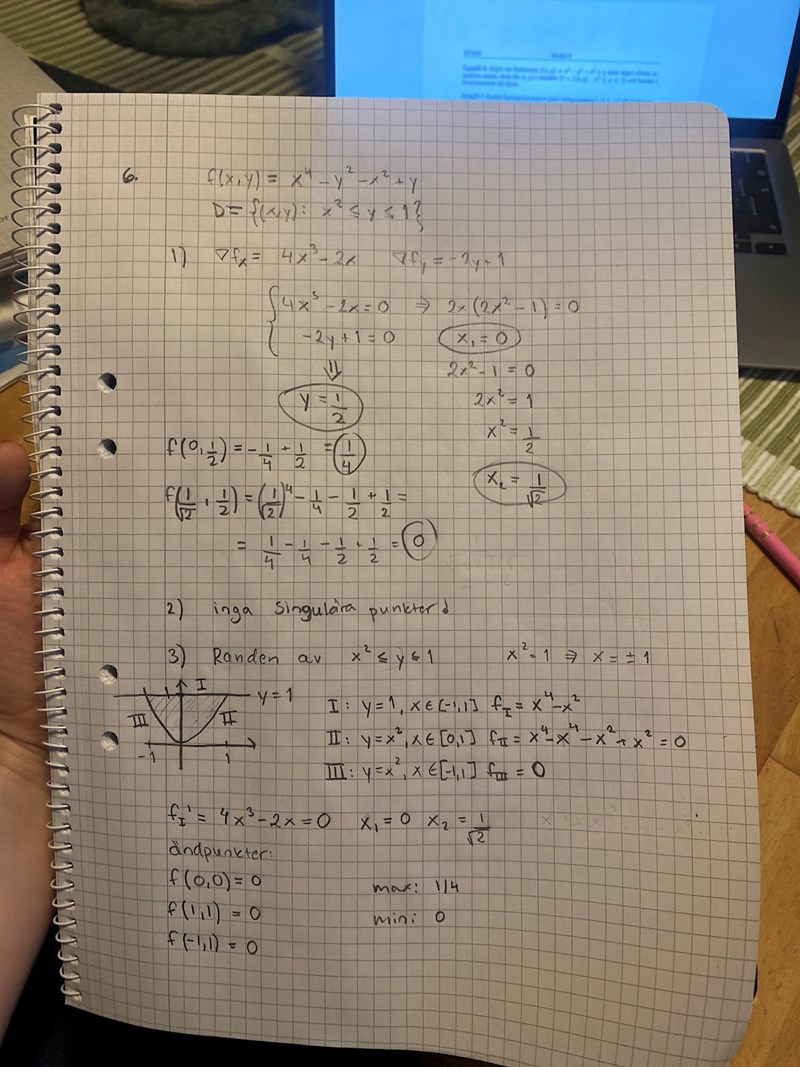 6. f(x,y) = x⁴ - y² - x² + y
D = {(x,y): x² ≤ y ≤ 1}
1) ∇fx = 4x³ - 2x ∇fy = -2y+1
4x³ - 2x = 0 ⇒ 2x(2x² - 1) = 0
-2y + 1 = 0 x₁ = 0
⇓ 2x² - 1 = 0
y = 1/2 2x² = 1
x² = 1/2
f(0, 1/2) = -1/4 + 1/2 = 1/4
x₂ = 1/√2
f(1/√2, 1/2) = (1/2)⁴ - 1/4 - 1/2 + 1/2 =
= 1/4 - 1/4 - 1/2 + 1/2 = 0
2) inga singulära punkter
3) Randen av x² ≤ y ≤ 1 x² = 1 ⇒ x = ±1
I y = 1
III II
-1 1
I: y = 1, x ∈ [-1,1] f_I = x⁴ - x²
II: y = x², x ∈ [0,1] f_II = x⁴ - x⁴ - x² + x² = 0
III: y = x², x ∈ [-1,1] f_III = 0
f_I' = 4x³ - 2x = 0 x₁ = 0 x₂ = 1/√2
ändpunkter:
f(0,0) = 0
max: 1/4
f(1,1) = 0
min: 0
f(-1,1) = 0